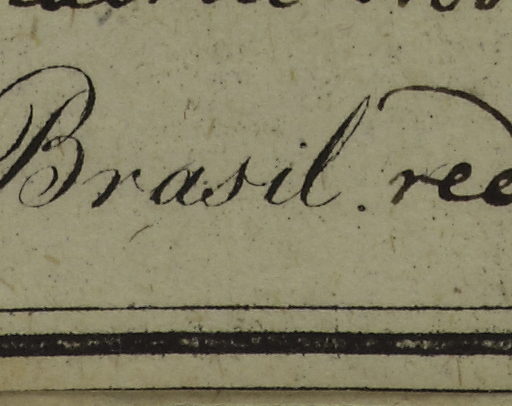 Brasil. ree